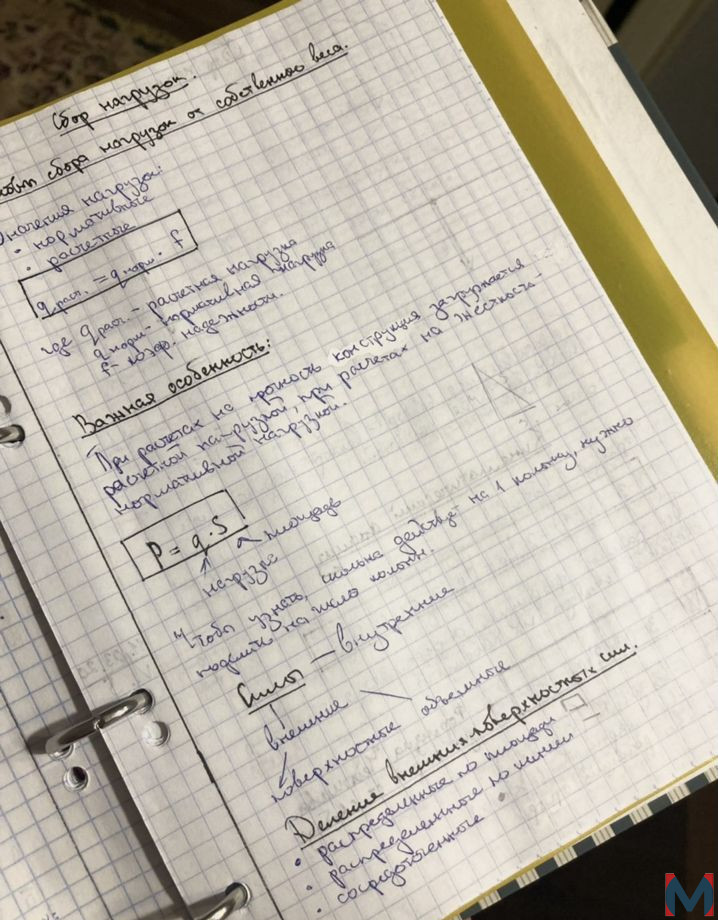 Сбор нагрузок.
сбора нагрузок от собственного веса.
Значения нагрузок:
• нормативные
• расчетные
q расч. = q норм. · f
где q расч. – расчетная нагрузка
q норм – нормативная нагрузка
f – коэф. надежности.
Важная особенность:
При расчетах на прочность конструкция загружается
расчетной нагрузкой, при расчетах на жесткость –
нормативной нагрузкой.
P = q · S
площадь
нагрузка
Чтобы узнать, сколько действует на 1 колонну, нужно
поделить на число колонн.
Силы – внутренние
внешние
поверхностные объемные
Деление внешних поверхностных сил.
• распределенные по площади
• распределенные по линии
• сосредоточенные
M